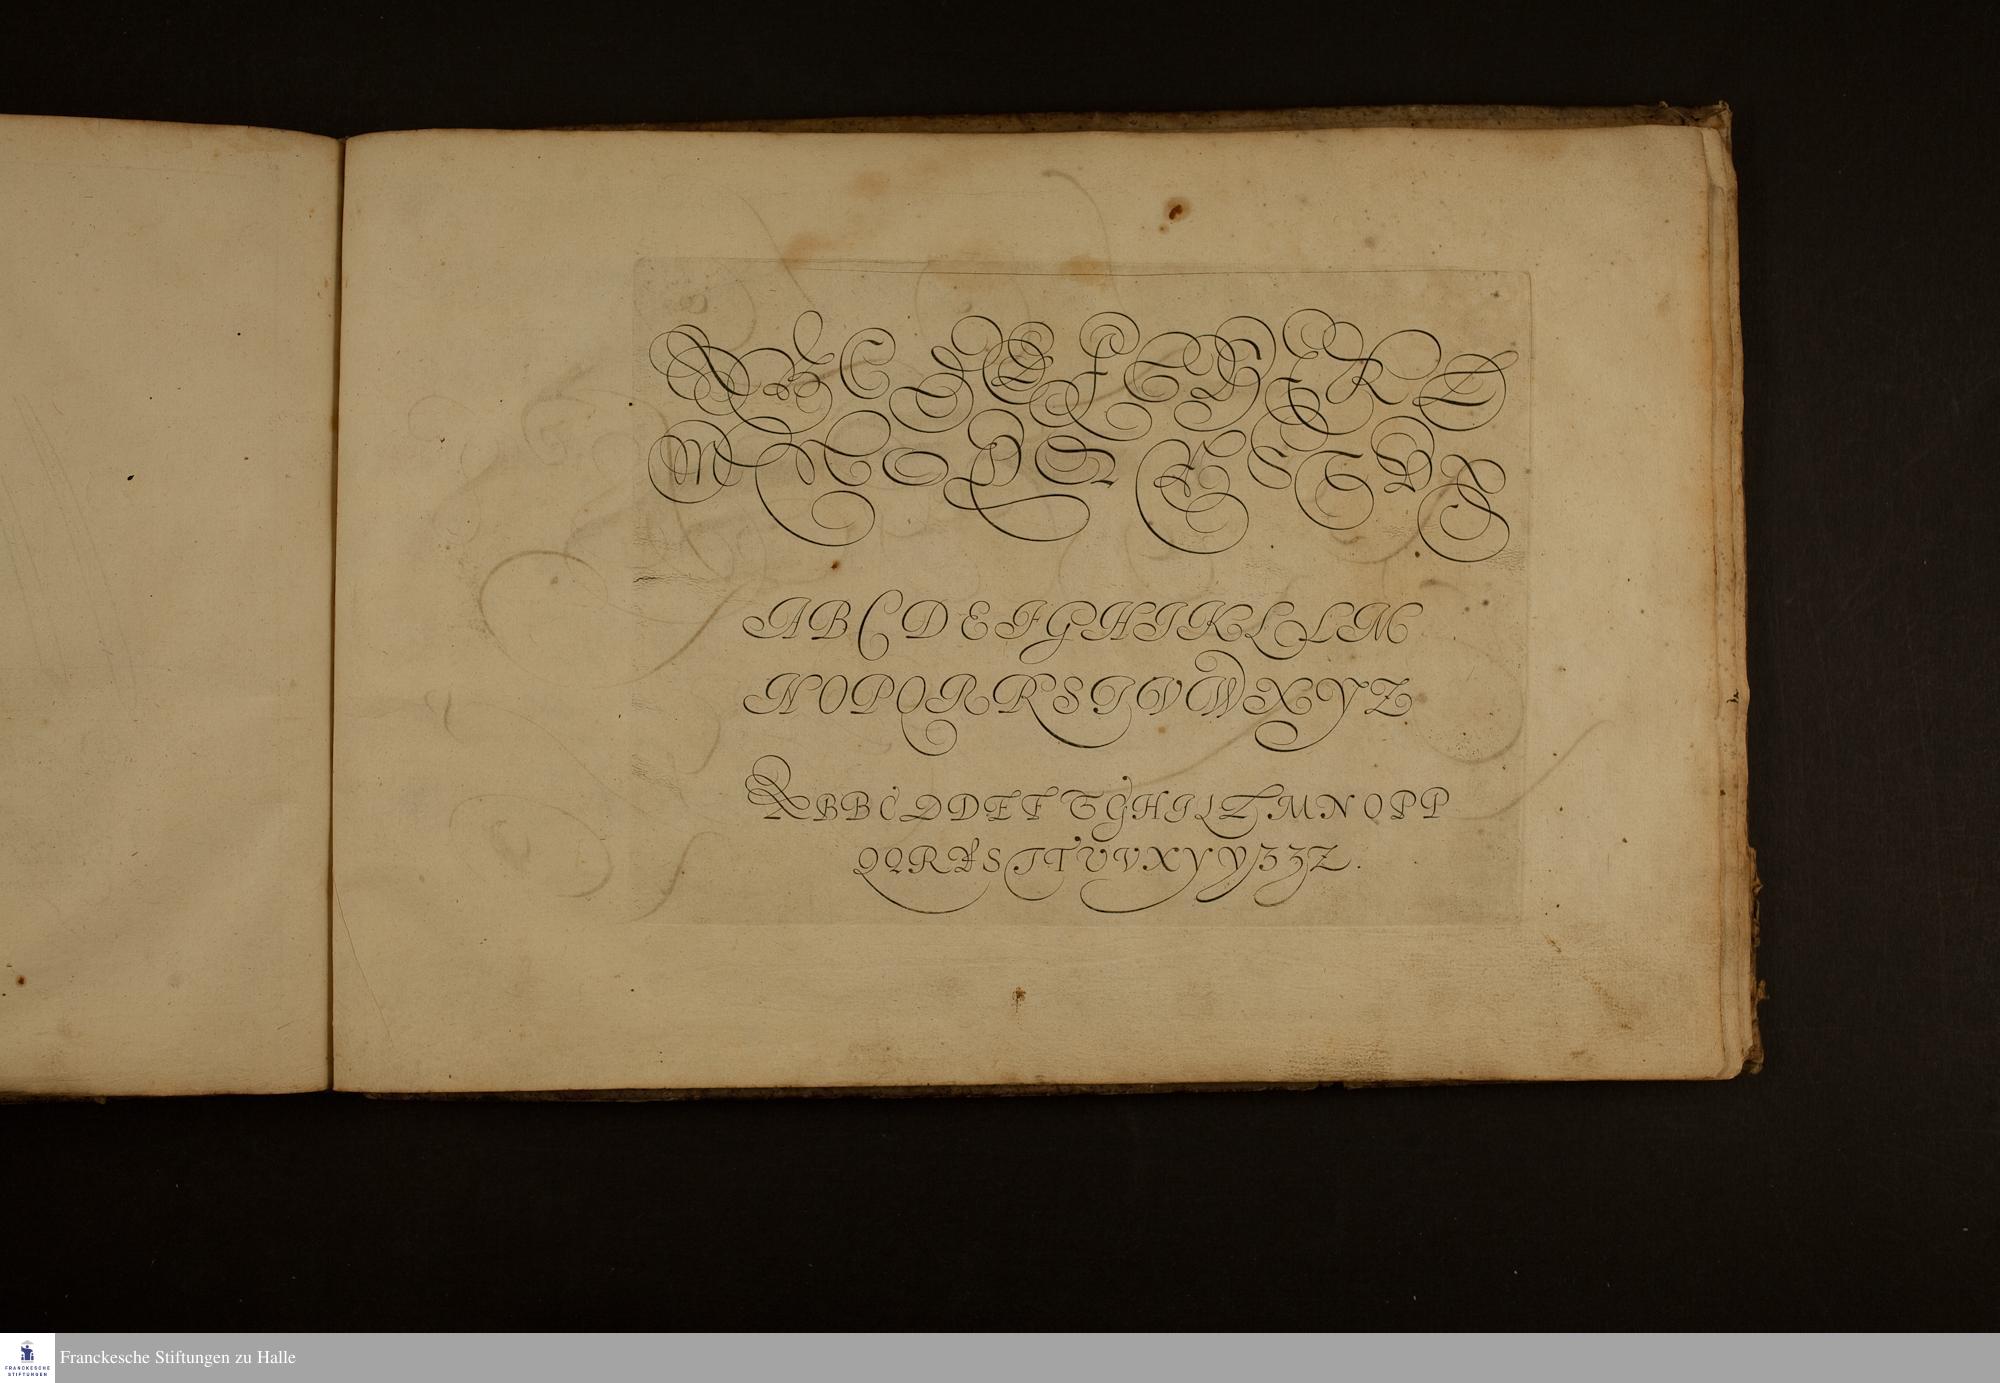 A B C D E F G H I K L
M N O P Q R S T V X
A B C D E F G H I K L L M
N O P Q R R S T V W X Y Z
A B B C D D E F G G H I L L M N O P P
Q Q R R S T T U V X Y Y Z Z Z .
Franckesche Stiftungen zu Halle
FRANCKESCHE
STIFTUNGEN